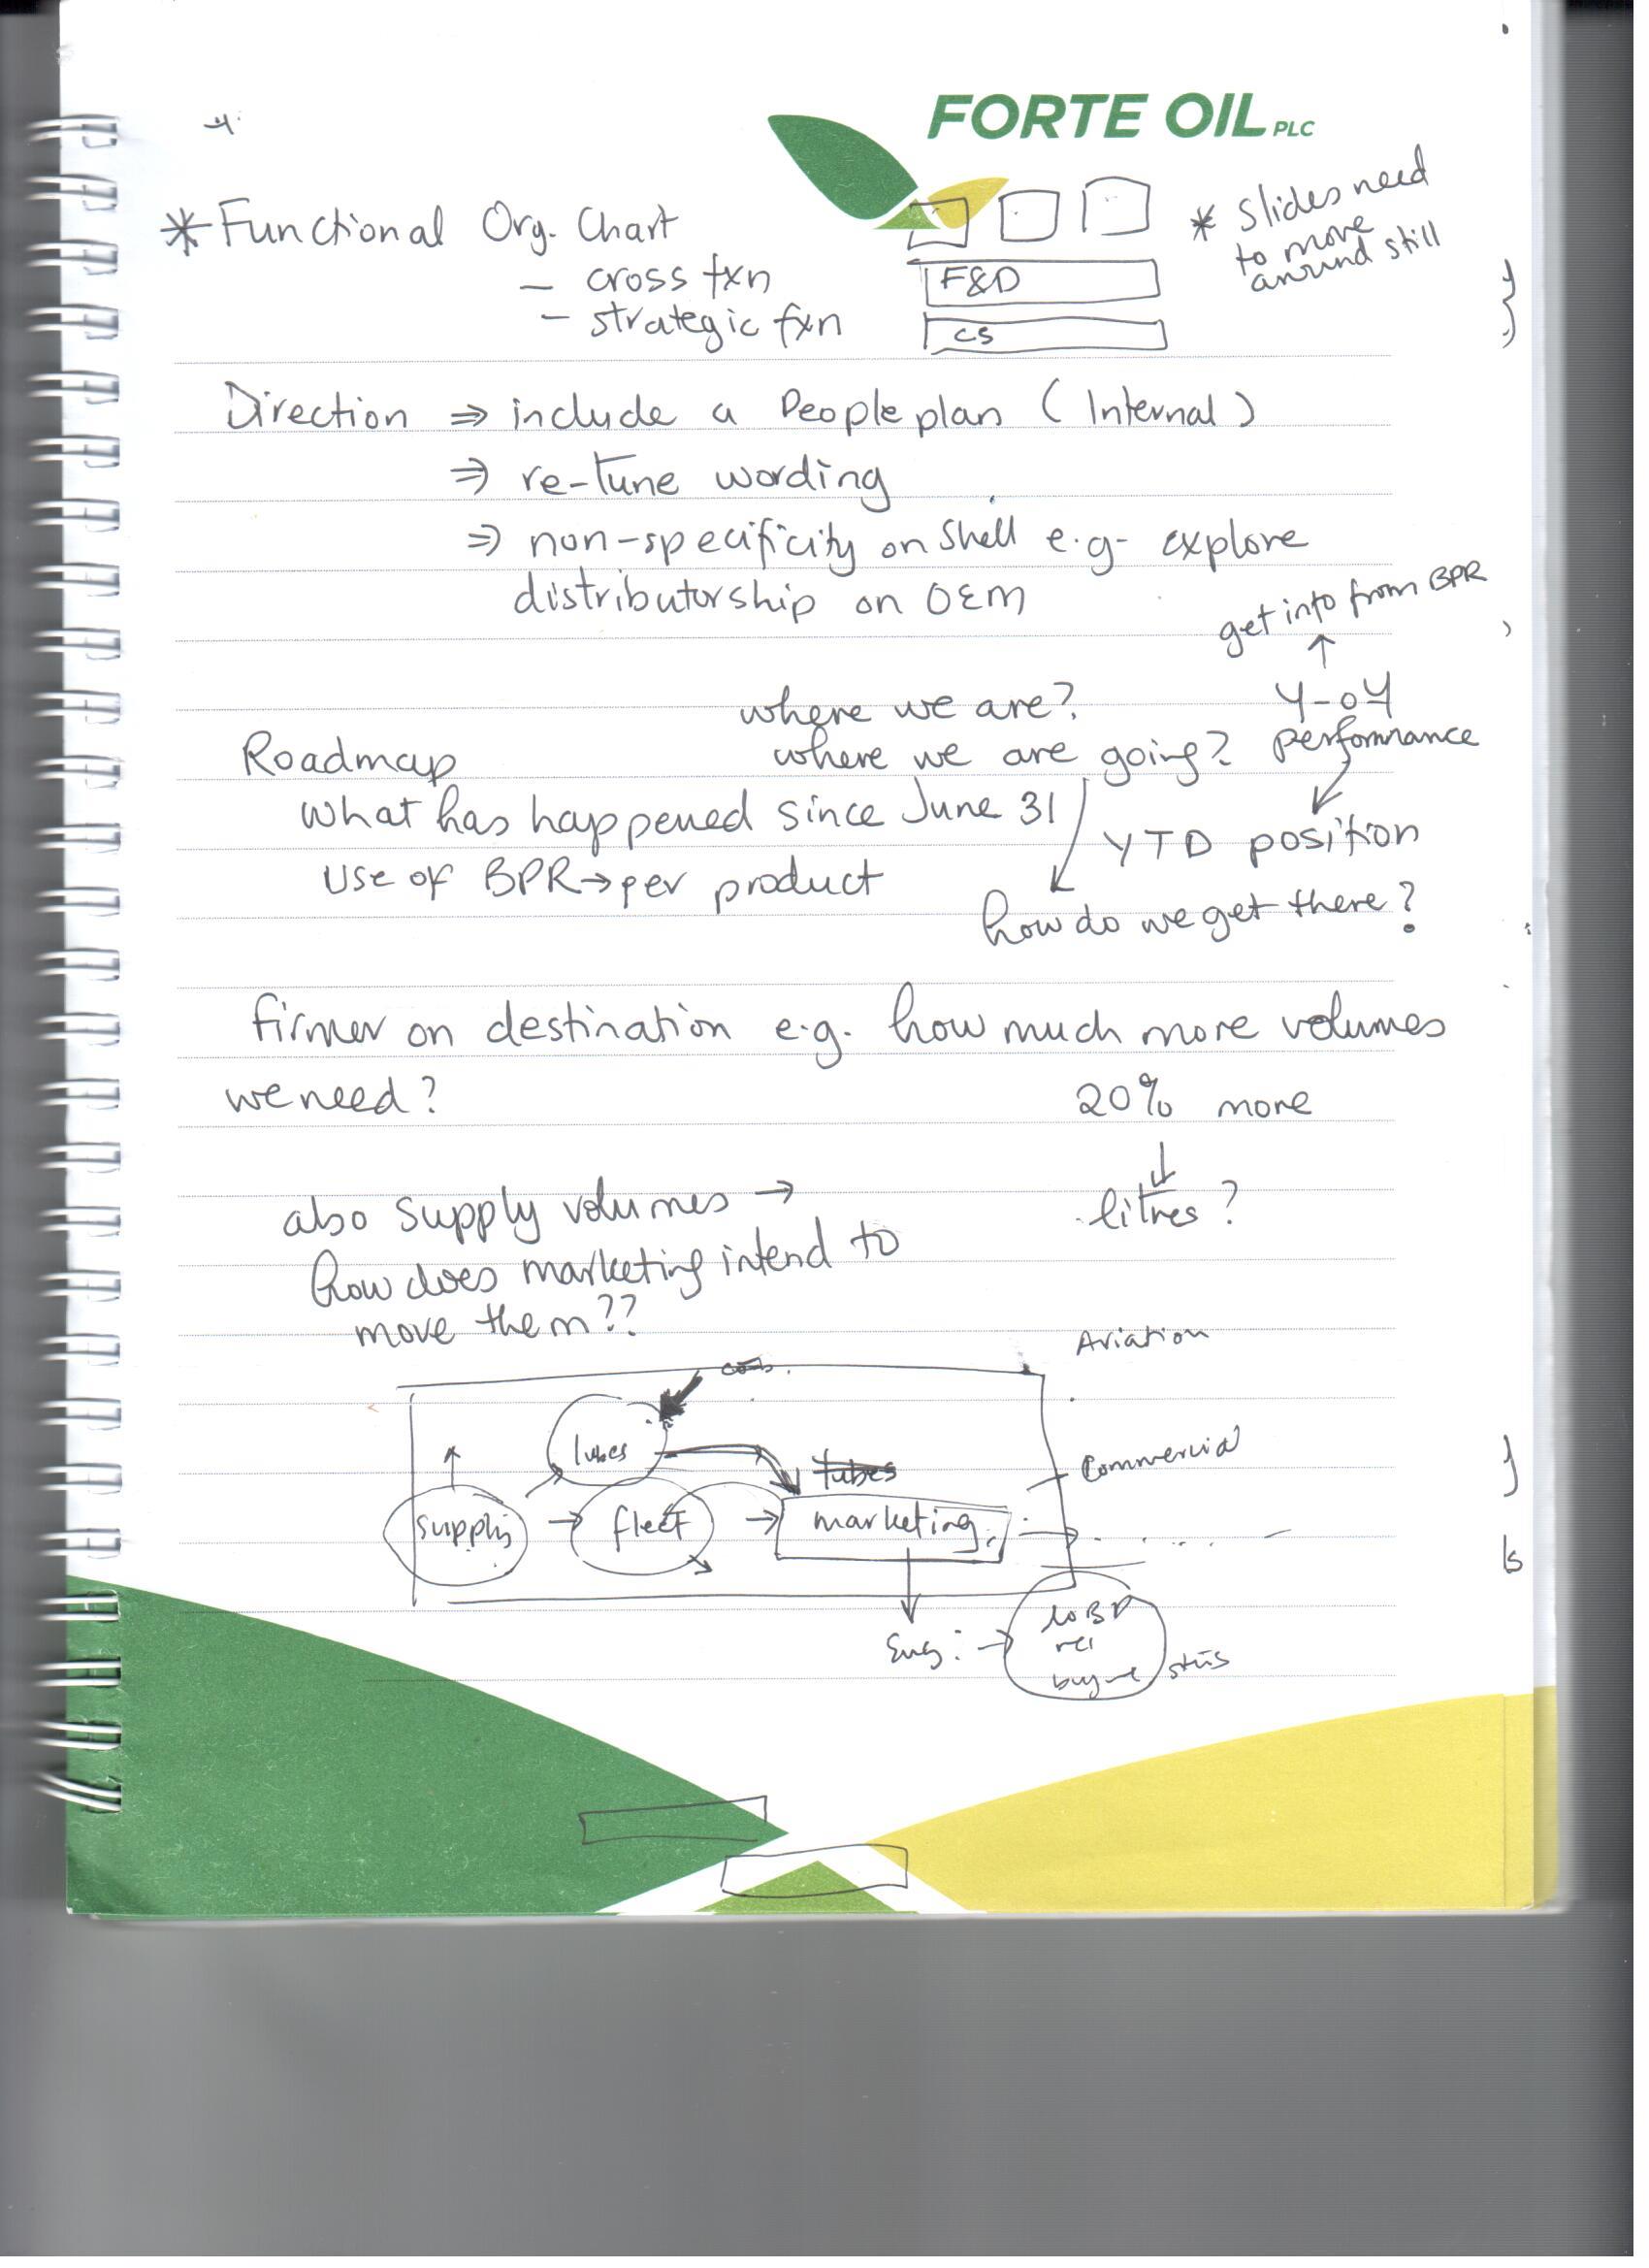 FORTE OIL PLC
* Functional Org. Chart
- cross fxn
- strategic fxn
F&D
CS
* Slides need
to move
around still
Direction ⇒ include a People plan (Internal)
⇒ re-tune wording
⇒ non-specificity on Shell e.g. explore
distributorship on OEM
get info from BPR
↑
Y-oY
performance
where we are?
where we are going?
Roadmap
What has happened since June 31
YTD position
Use of BPR → per product
how do we get there?
firmer on destination e.g. how much more volumes
we need?
20% more
↓
litres?
also supply volumes →
how does marketing intend to
move them??
Aviation
lubes
Commercial
supply → fleet → marketing